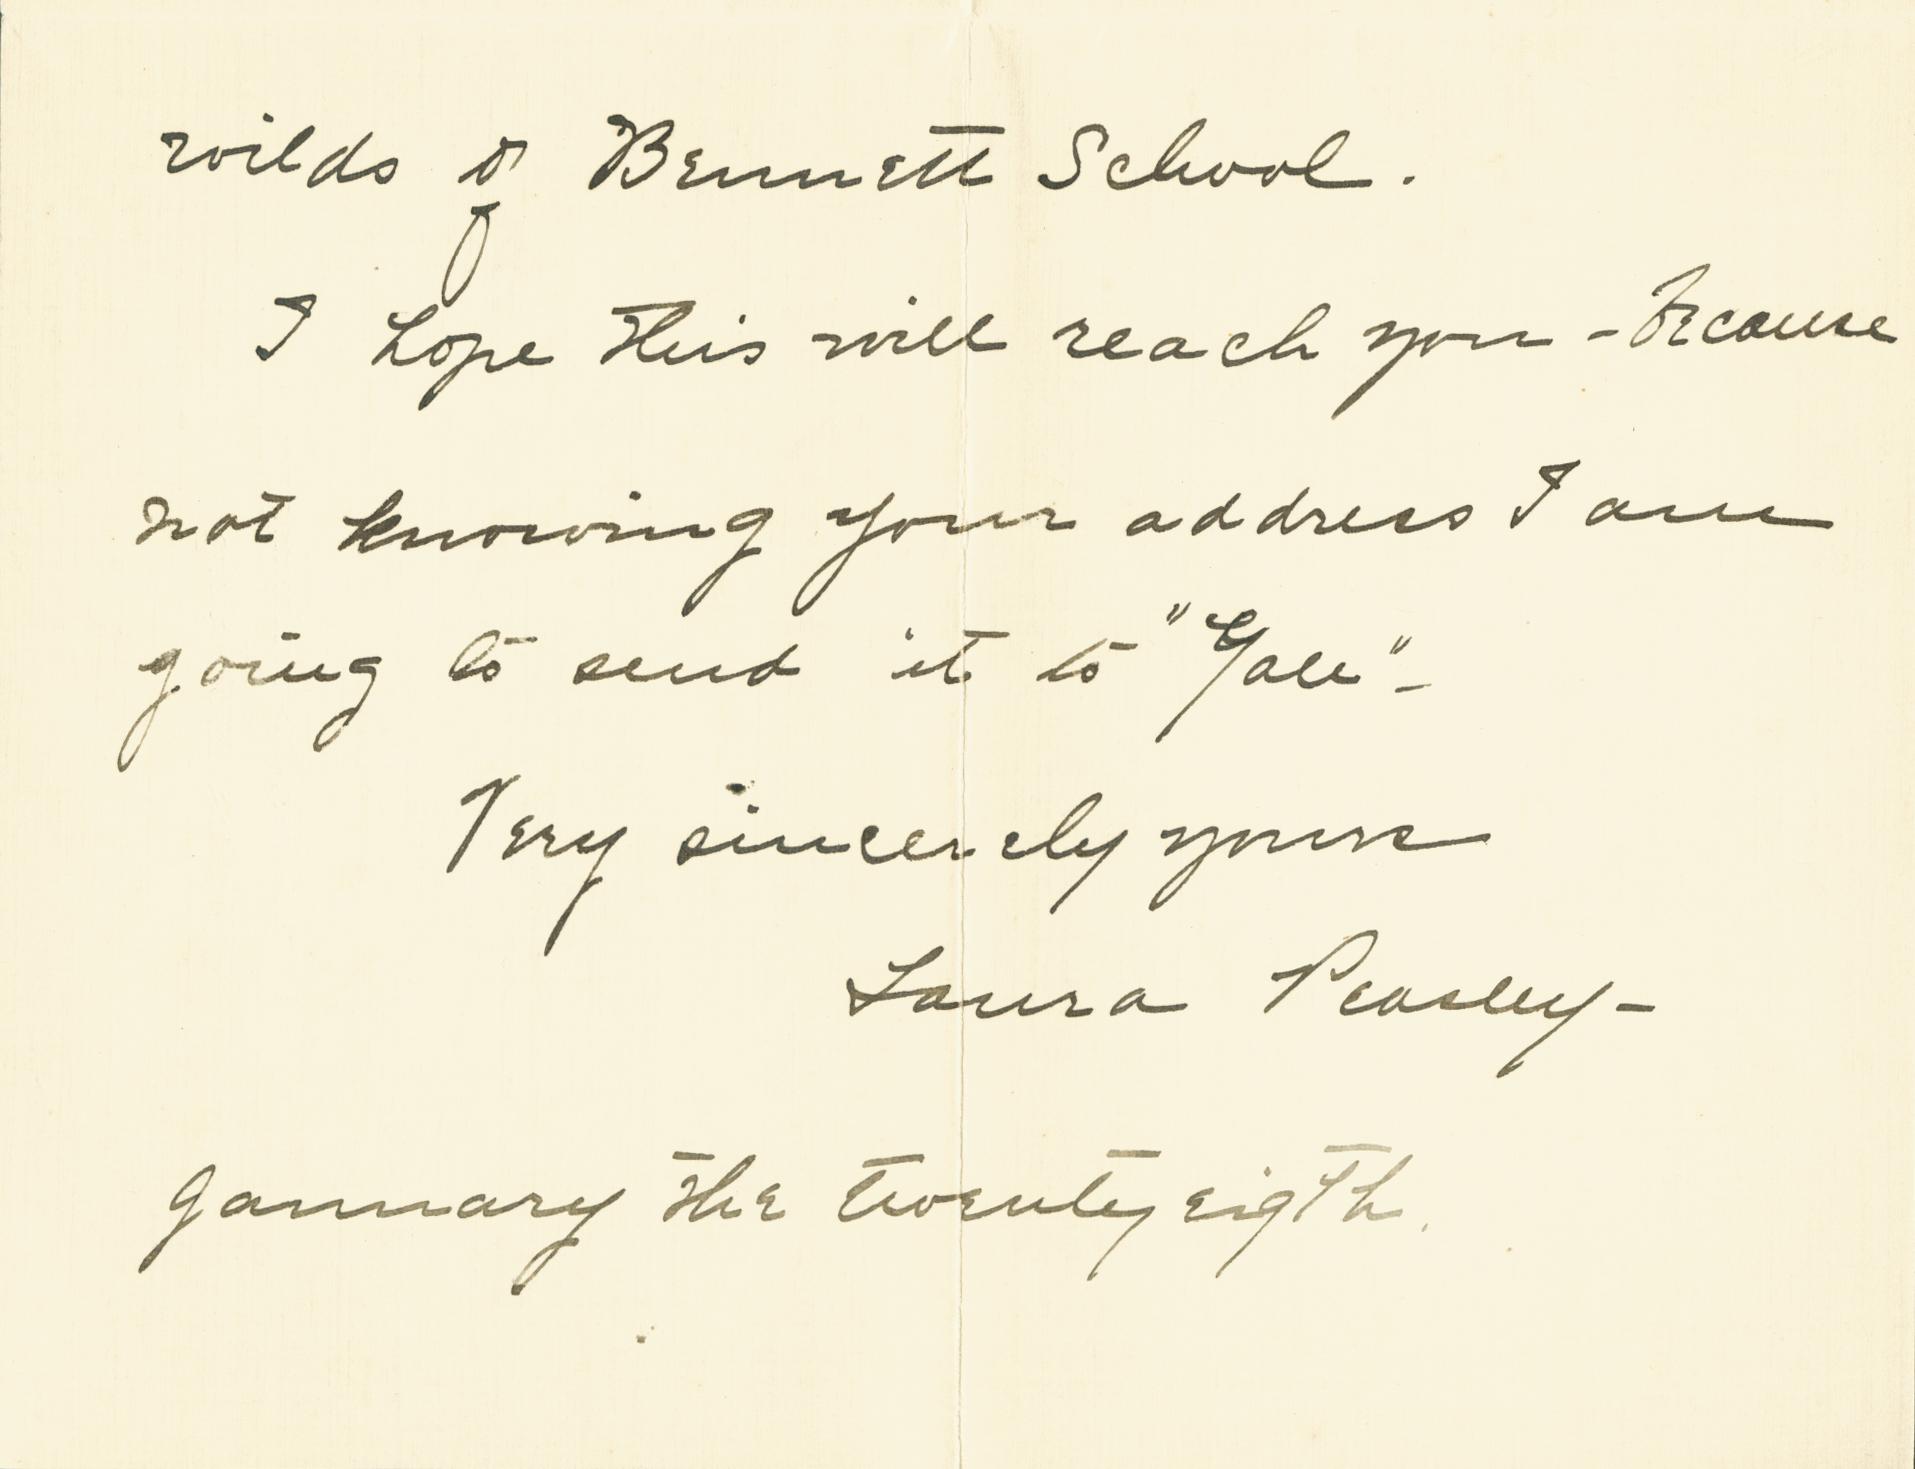 wilds of Bennett School.
I hope this will reach you - because
not knowing your address I am
going to send it to "Yale" -
Very sincerely yours
Laura Peasley -
January the twenty eigth.